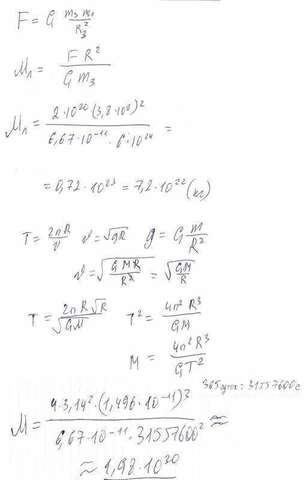 F = G m₃ mₗ / R₃²
Mₗ = F R² / G m₃
Mₗ = 2·10²⁰ (3,8·10⁸)² / 6,67·10⁻¹¹ · 6·10²⁴ =
= 0,72·10²³ = 7,2·10²² (кг)
T = 2πR / v   v = √gR   g = G m / R²
v = √(G M R / R²) = √(GM / R)
T = 2πR√R / √GM   T² = 4π² R³ / GM
M = 4π² R³ / GT²
365 суток = 31557600 с
M = 4·3,14² · (1,496·10⁻¹¹)³ / 6,67·10⁻¹¹ · 31557600² ≈
≈ 1,98·10³⁰